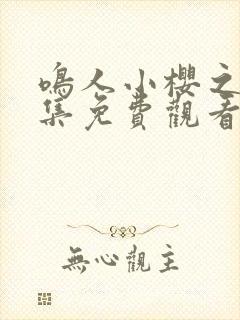 鳴人小櫻之
集免費觀看
無心觀主